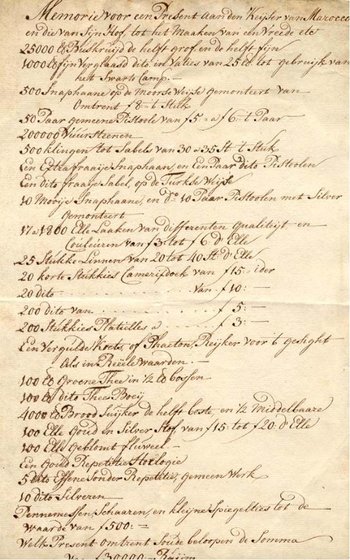 Memorie voor een Present aan den Keijser van Marocco
en die van Sijn Hof, tot het Maaken van een Vreede etc
25000 lb Buskruijd de helft grof en de helft fijn
1000 lb fijn Verglaasd dito in Vaties van 25 lb tot gebruijk van
het Swarte Camp.
500 Snaphaane op de Moorse Wijse gemonteert van
Omtrent f 8 - t Stuk
50 Paar gemeene Pistoole van f 5 - a f 6 - t Paar
200000 Vuursteenen
500 klingen tot Sabels van 30 a 35 St t Stuk
Een Extra fraaije Snaphaan, en Een Paar dito Pistoolen
Een dito fraaije Sabel, op de Turkse Wijse
10 Moije Snaphaane, en do 10 Paar Pistoolen met Silver
Gemonteert
1800 Elle Laaken van differenten Qualiteijt en
Couleuren van f 3 tot f 6 d' Elle
25 Stukke Linnen van 20 tot 40 St d' Elle
20 korte Stukkies Camerijxdoek van f 15 - ider
20 dito van f 10 : -
200 dito van f 5 : -
200 Stukkies Platilles a f 3 : -
Een Vergulde Koets of Phaeton Reijker voor t gesight
Als in Reëele waarden
100 lb Groene Thee in ¼ lb bossen
100 lb dito Thee Boeij
4000 lb Brood Suijker de helft beste en ½ Middelbaare
100 Elle Goud en Silver Stof van f 15 - tot f 20 d' Elle
100 Elle Geblomt fluweel
Een Goud Repetitie Horlogie
5 dito Effene Sonder Repetitie, gemeen Werk
10 dito Silveren
Pennemessen, Schaaren, en kleijne Spiegelties tot de
Waarde van f 500 : -
Welk Present omtrent Soude beloopen de Somma
van f 30000 -